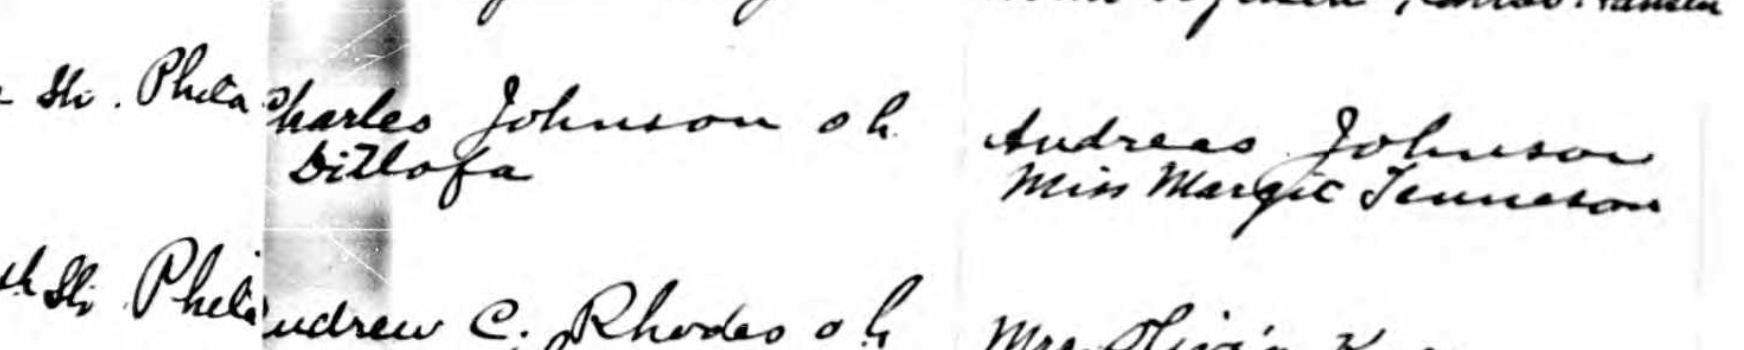 St. Phila Charles Johnson o h. Andreas Johnson
Ditlofa Miss Margit Tenneson
St. Phila Andrew C. Rhodes o h Mrs. Olivia